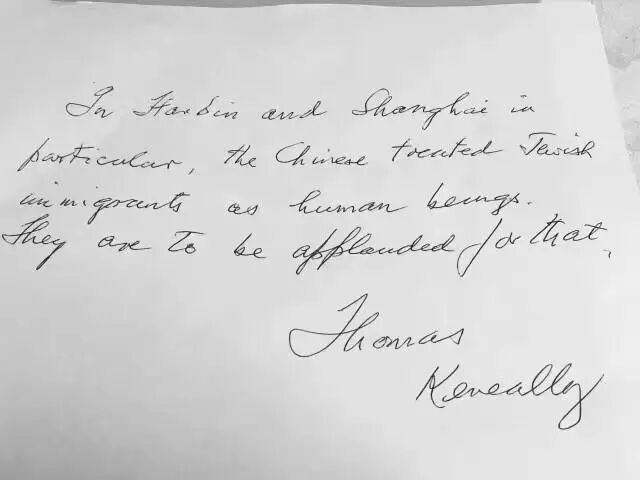 In Harbin and Shanghai in
particular, the Chinese treated Jewish
immigrants as human beings.
They are to be applauded for that.
Thomas
Keneally